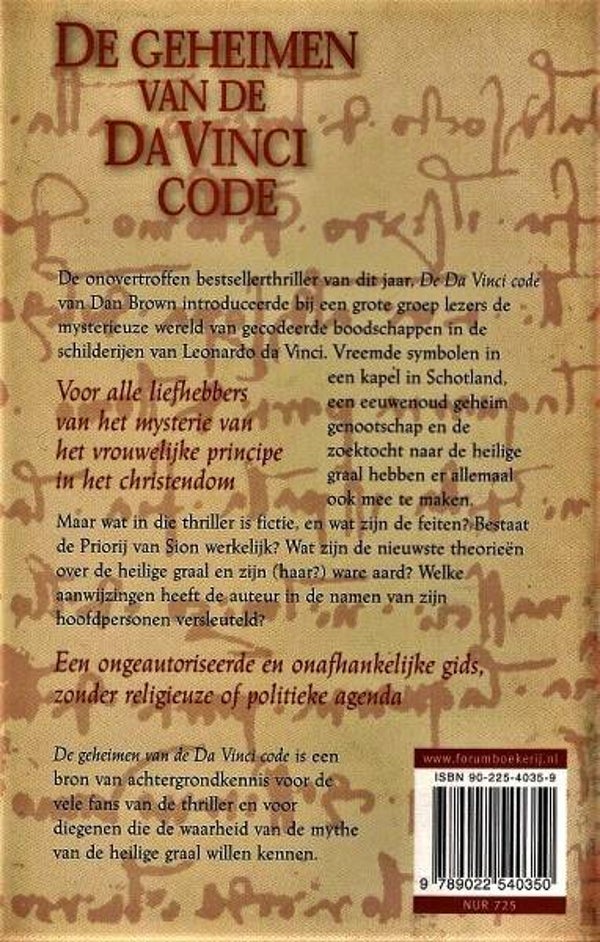 DE GEHEIMEN
VAN DE
DA VINCI
CODE
De onovertroffen bestsellerthriller van dit jaar, De Da Vinci code
van Dan Brown introduceerde bij een grote groep lezers de
mysterieuze wereld van gecodeerde boodschappen in de
schilderijen van Leonardo da Vinci. Vreemde symbolen in
een kapel in Schotland,
een eeuwenoud geheim
genootschap en de
zoektocht naar de heilige
graal hebben er allemaal
ook mee te maken.
Voor alle liefhebbers
van het mysterie van
het vrouwelijke principe
in het christendom
Maar wat in die thriller is fictie, en wat zijn de feiten? Bestaat
de Priorij van Sion werkelijk? Wat zijn de nieuwste theorieën
over de heilige graal en zijn (haar?) ware aard? Welke
aanwijzingen heeft de auteur in de namen van zijn
hoofdpersonen versleuteld?
Een ongeautoriseerde en onafhankelijke gids,
zonder religieuze of politieke agenda
De geheimen van de Da Vinci code is een
bron van achtergrondkennis voor de
vele fans van de thriller en voor
diegenen die de waarheid van de mythe
van de heilige graal willen kennen.
www.forumboekerij.nl
ISBN 90-225-4035-9
9 789022 540350
NUR 725